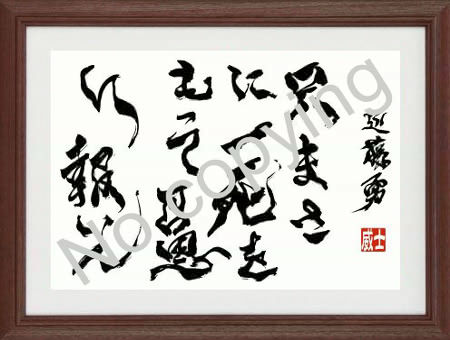 近藤勇
只まさ
に一死を
もて君恩
に報
No copying